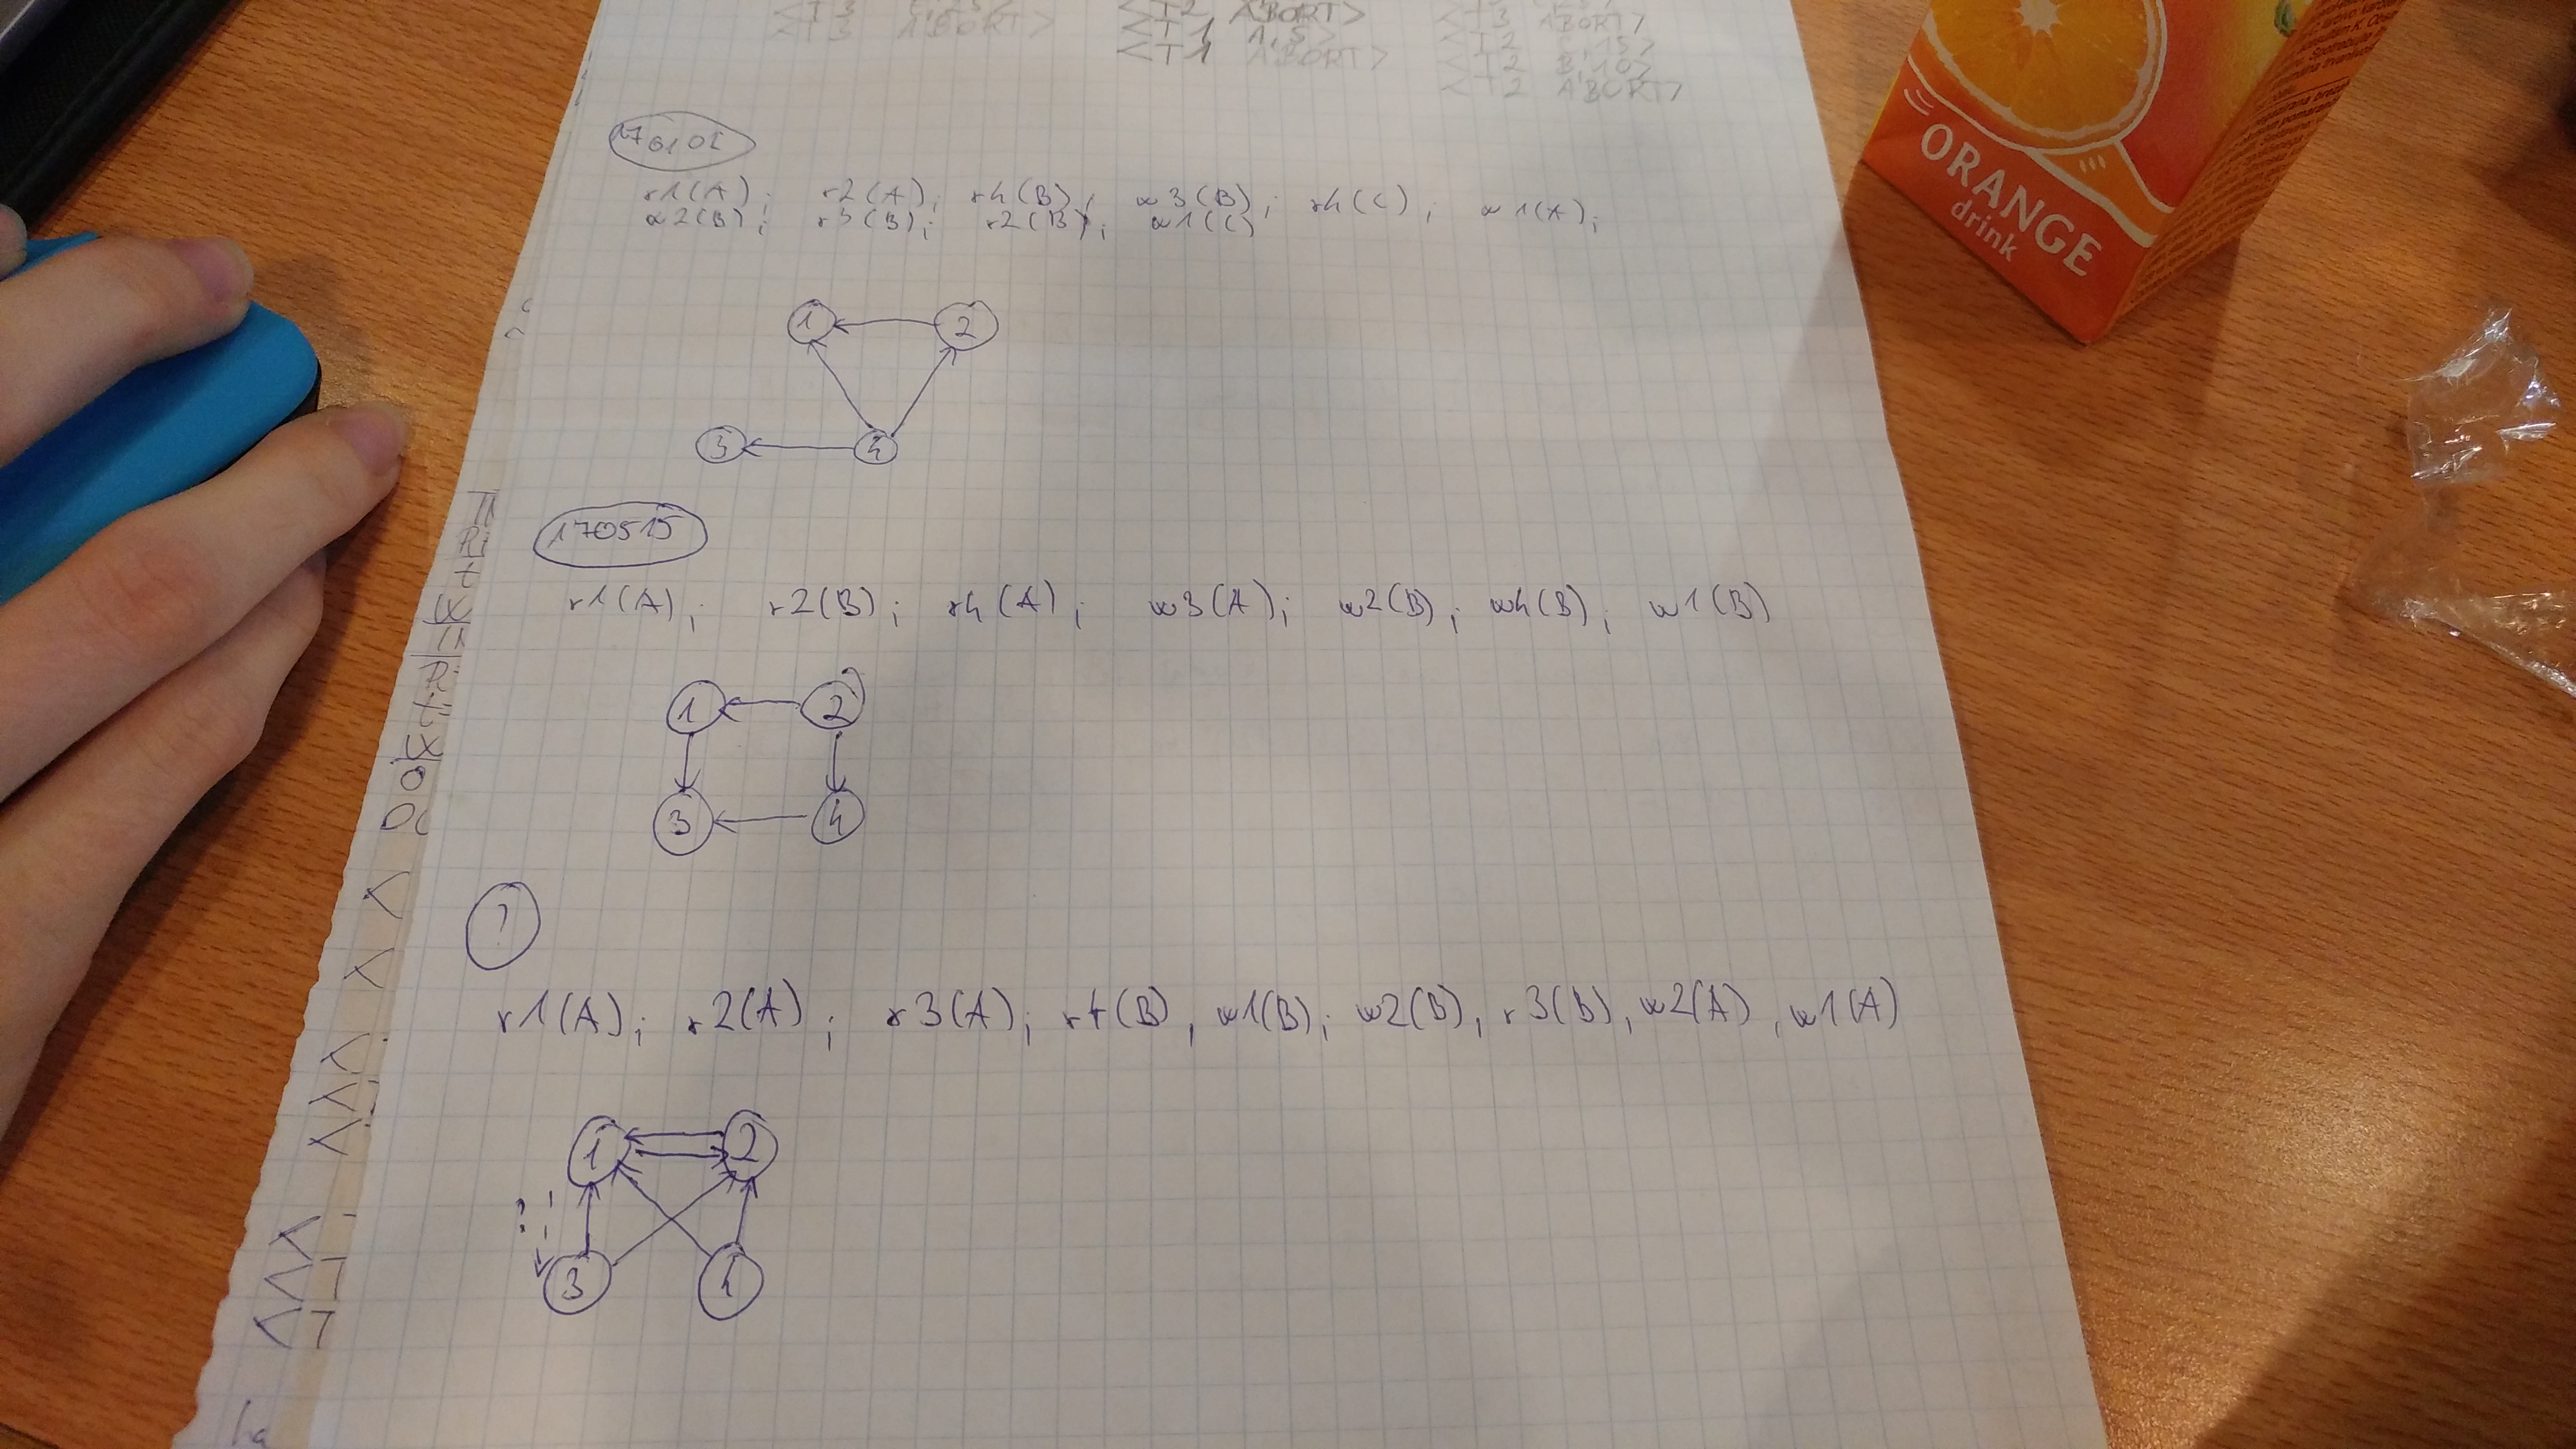 <T2 ABORT>
<T3 ABORT>
<T3 ABORT>
<T1 1,5>
<T2 B,15>
<T1 ABORT>
<T2 B,10>
<T2 ABORT>
ORANGE
drink
r1(A); r2(A); r4(B); w3(B); r4(C); w1(A);
w2(B); r3(B); r2(B); w1(C)
1 2
3 4
170515
r1(A); r2(B); r4(A); w3(A); w2(B); w4(B); w1(B)
1 2
3 4
?
r1(A); r2(A); r3(A); r4(B), w1(B); w2(B), r3(B), w2(A), w1(A)
1 2
?
3 4